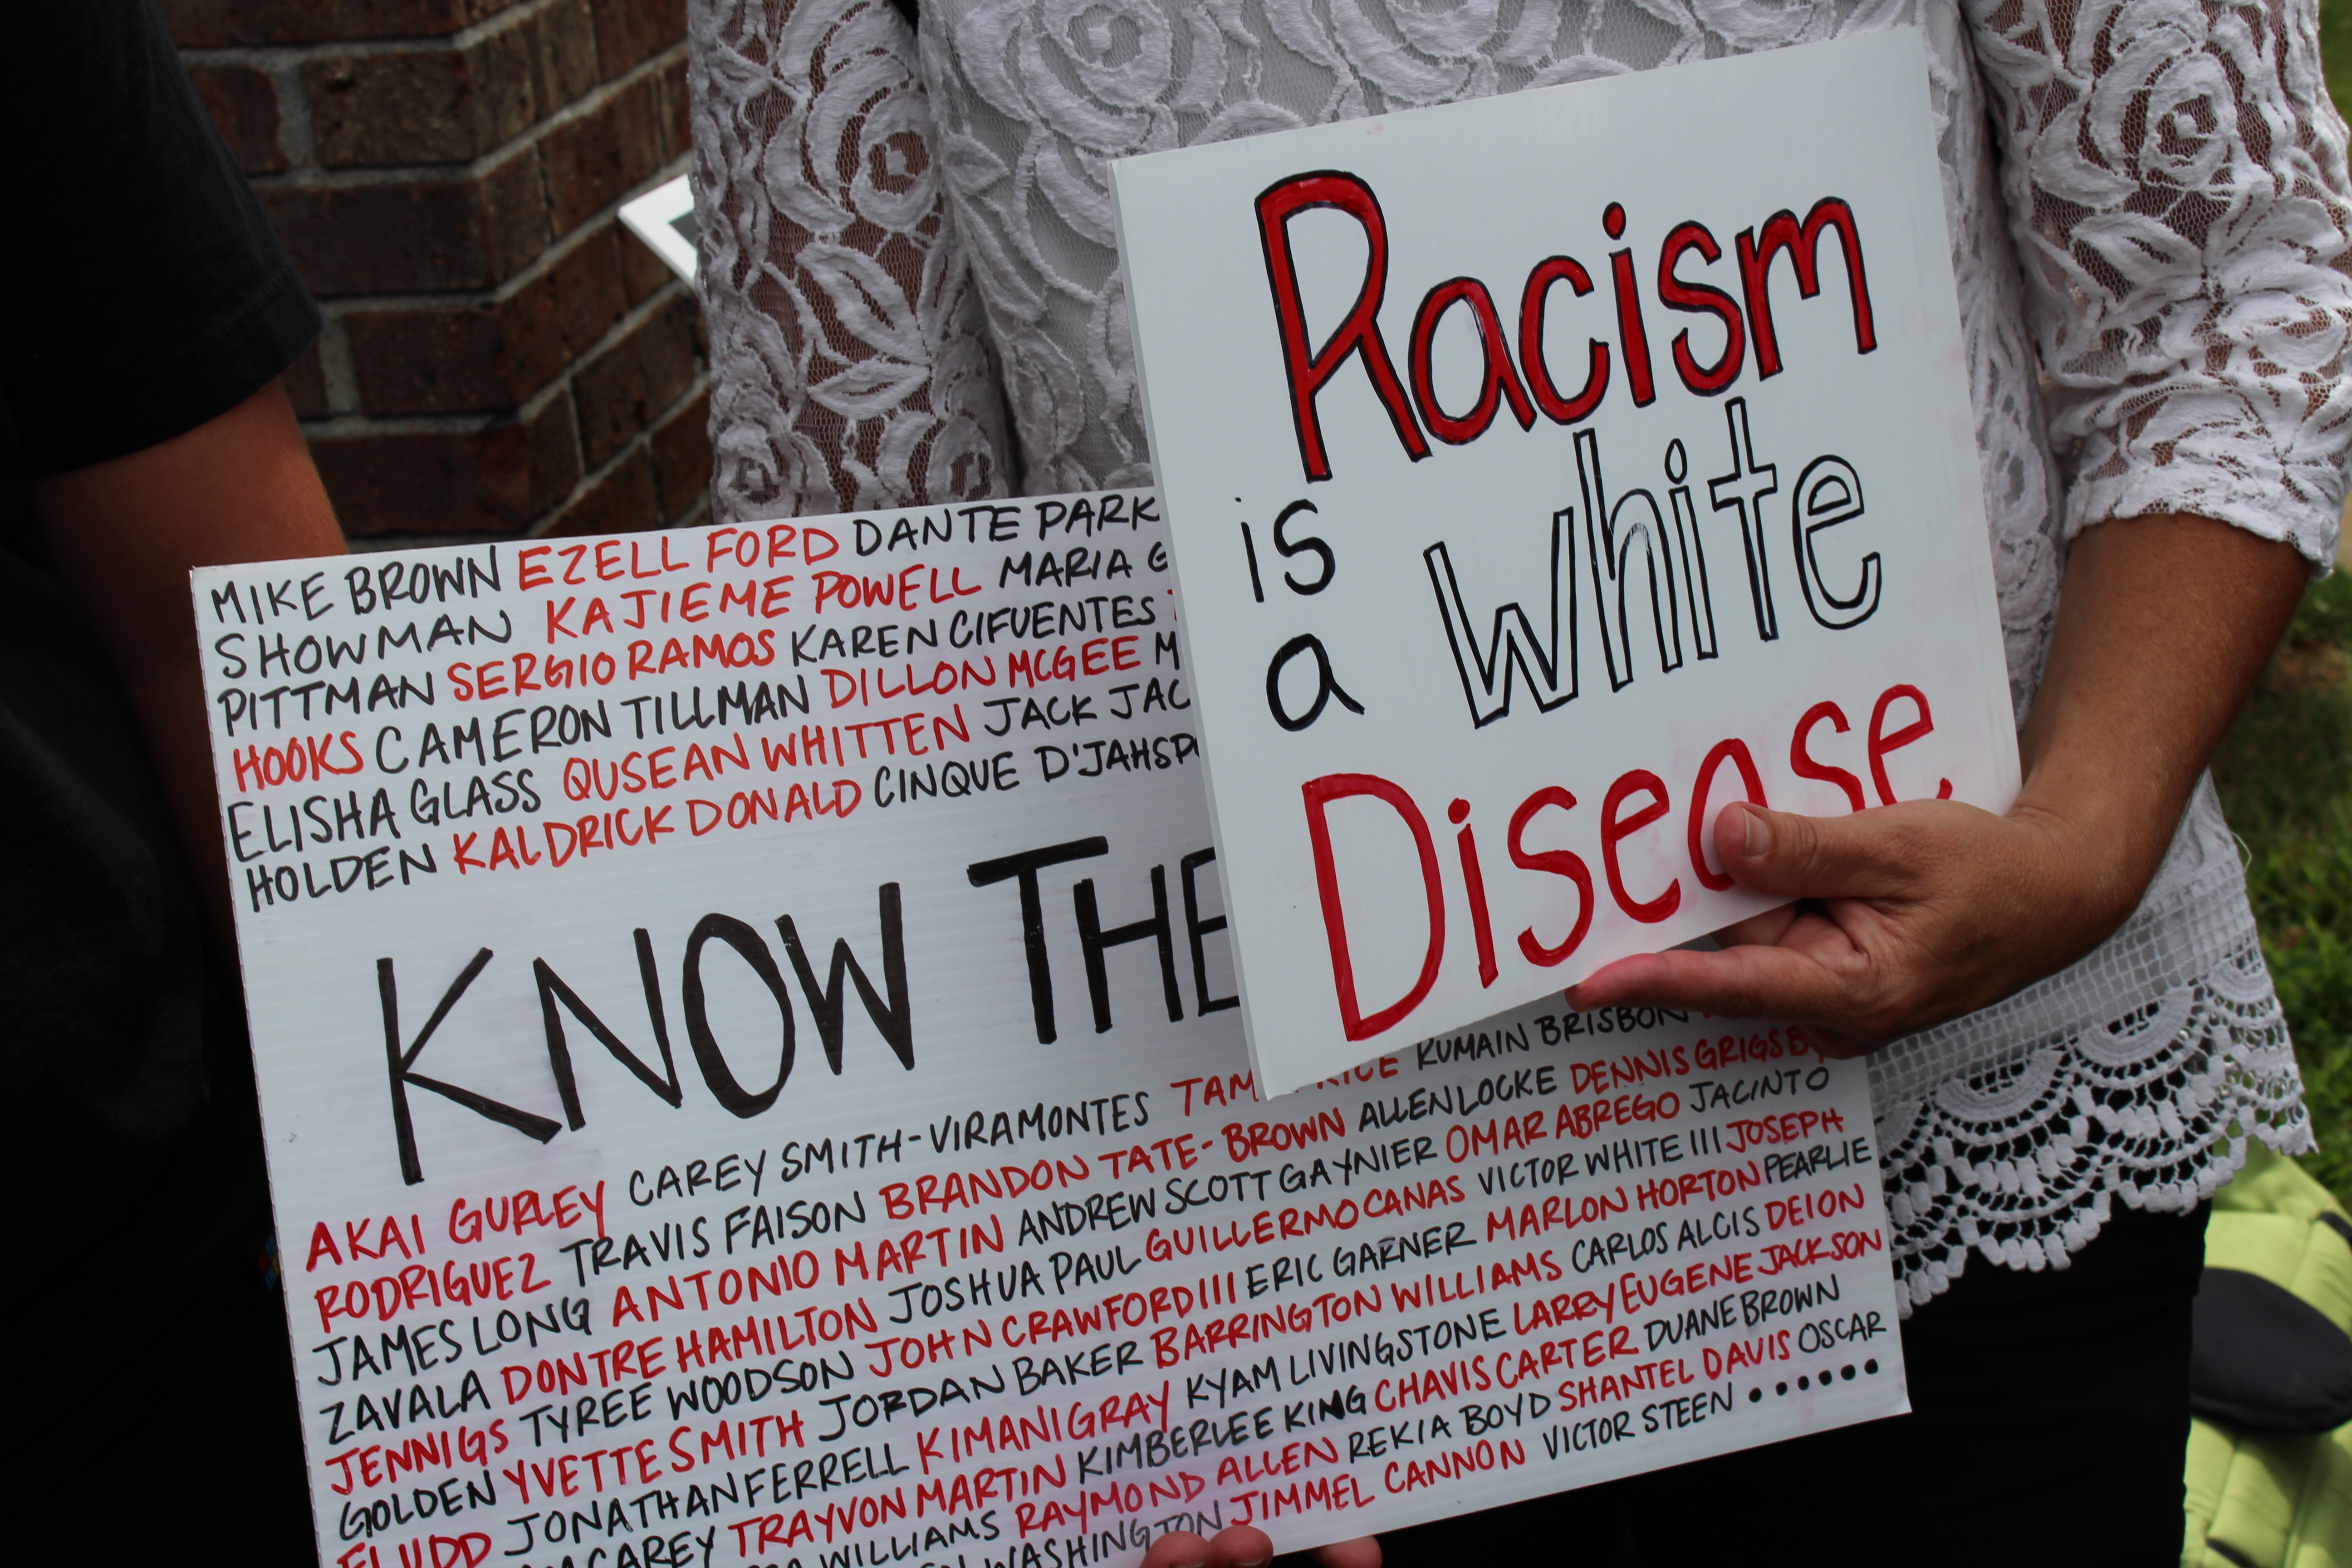 Racism
is white
a
Disease
MIKE BROWN EZELL FORD DANTE PARK
SHOWMAN KAJIEME POWELL MARIA G
PITTMAN SERGIO RAMOS KAREN CIFUENTES
HOOKS CAMERON TILLMAN DILLON MCGEE M
ELISHA GLASS QUSEAN WHITTEN JACK JAC
HOLDEN KALDRICK DONALD CINQUE D'JAHSP
KNOW THE
AKAI GURLEY CAREY SMITH-VIRAMONTES TAM RICE RUMAIN BRISBON
RODRIGUEZ TRAVIS FAISON BRANDON TATE-BROWN ALLEN LOCKE DENNIS GRIGSBY
JAMES LONG ANTONIO MARTIN ANDREW SCOTT GAYNIER OMAR ABREGO JACINTO
ZAVALA DONTRE HAMILTON JOSHUA PAUL GUILLERMO CANAS VICTOR WHITE III JOSEPH
JENNIGS TYREE WOODSON JOHN CRAWFORD III ERIC GARNER MARLON HORTON PEARLIE
GOLDEN YVETTE SMITH JORDAN BAKER BARRINGTON WILLIAMS CARLOS ALCIS DEION
FLUDD JONATHAN FERRELL KIMANI GRAY KYAM LIVINGSTONE LARRY EUGENE JACKSON
CAREY TRAYVON MARTIN KIMBERLEE KING CHAVIS CARTER DUANE BROWN
WILLIAMS RAYMOND ALLEN REKIA BOYD SHANTEL DAVIS OSCAR
WASHINGTON JIMMEL CANNON VICTOR STEEN ••••••